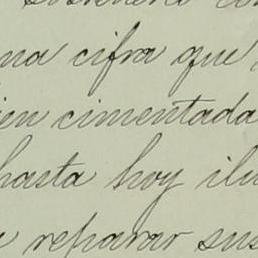 una cifra que
bien cimentada
hasta hoy
reparar sus